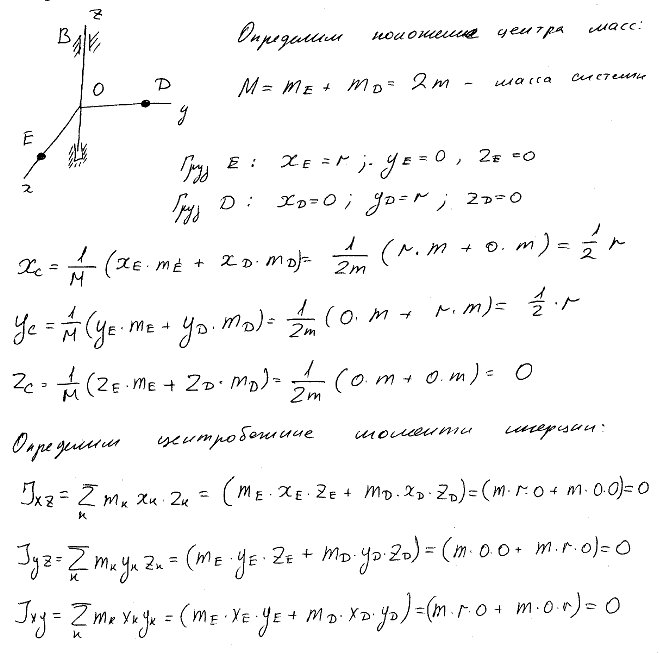 z
B
Определим положение центра масс:
O
D
M = mE + mD = 2m – масса системы
y
E
Груз E: xE = r; yE = 0, zE = 0
x
Груз D: xD = 0; yD = r; zD = 0
xc = 1/M (xE · mE + xD · mD) = 1/2m (r · m + 0 · m) = 1/2 r
yc = 1/M (yE · mE + yD · mD) = 1/2m (0 · m + r · m) = 1/2 · r
zc = 1/M (zE · mE + zD · mD) = 1/2m (0 · m + 0 · m) = 0
Определим центробежные моменты инерции:
Jxz = Σк mк xк · zк = (mE · xE · zE + mD · xD · zD) = (m · r · 0 + m · 0 · 0) = 0
Jyz = Σк mк yк zк = (mE · yE · zE + mD · yD · zD) = (m · 0 · 0 + m · r · 0) = 0
Jxy = Σк mк xк yк = (mE · xE · yE + mD · xD · yD) = (m · r · 0 + m · 0 · r) = 0